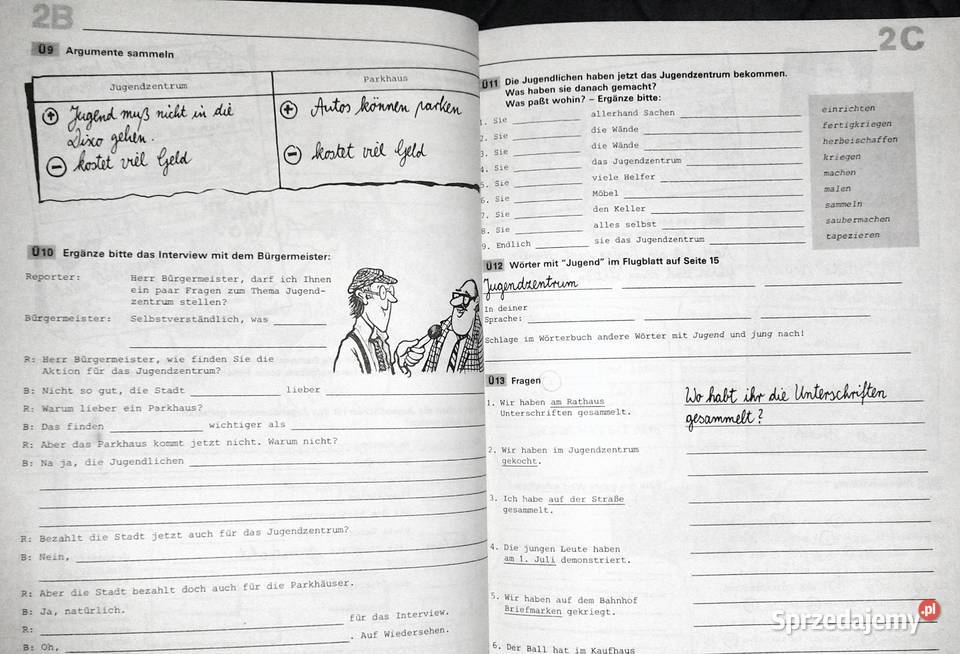 2B
Ü9 Argumente sammeln
Jugendzentrum
Parkhaus
+ Jugend muß nicht in die
Disco gehen.
− kostet viel Geld
+ Autos können parken
− kostet viel Geld
Ü10 Ergänze bitte das Interview mit dem Bürgermeister:
Reporter: Herr Bürgermeister, darf ich Ihnen
ein paar Fragen zum Thema Jugend-
zentrum stellen?
Bürgermeister: Selbstverständlich, was
R: Herr Bürgermeister, wie finden Sie die
Aktion für das Jugendzentrum?
B: Nicht so gut, die Stadt lieber
R: Warum lieber ein Parkhaus?
B: Das finden wichtiger als
R: Aber das Parkhaus kommt jetzt nicht. Warum nicht?
B: Na ja, die Jugendlichen
R: Bezahlt die Stadt jetzt auch für das Jugendzentrum?
B: Nein,
R: Aber die Stadt bezahlt doch auch für die Parkhäuser.
B: Ja, natürlich.
R: für das Interview.
B: Oh, . Auf Wiedersehen.
2C
Ü11 Die Jugendlichen haben jetzt das Jugendzentrum bekommen.
Was haben sie danach gemacht?
Was paßt wohin? – Ergänze bitte:
1. Sie allerhand Sachen
2. Sie die Wände
3. Sie die Wände
4. Sie das Jugendzentrum
5. Sie viele Helfer
6. Sie Möbel
7. Sie den Keller
8. Sie alles selbst
9. Endlich sie das Jugendzentrum
einrichten
fertigkriegen
herbeischaffen
kriegen
machen
malen
sammeln
saubermachen
tapezieren
Ü12 Wörter mit "Jugend" im Flugblatt auf Seite 15
Jugendzentrum
In deiner
Sprache:
Schlage im Wörterbuch andere Wörter mit Jugend und jung nach!
Ü13 Fragen
1. Wir haben am Rathaus
Unterschriften gesammelt.
Wo habt ihr die Unterschriften
gesammelt?
2. Wir haben im Jugendzentrum
gekocht.
3. Ich habe auf der Straße
gesammelt.
4. Die jungen Leute haben
am 1. Juli demonstriert.
5. Wir haben auf dem Bahnhof
Briefmarken gekriegt.
6. Der Ball hat im Kaufhaus
Sprzedajemy.pl